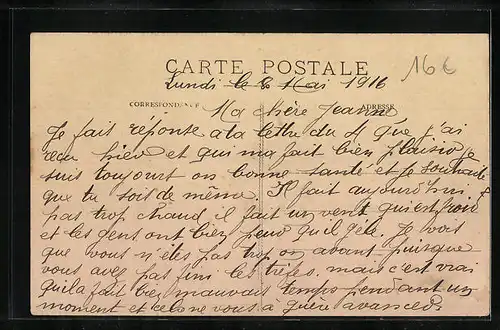 16€
CARTE POSTALE
Lundi le 8 Mai 1916
CORRESPONDANCE
ADRESSE
Ma chère Jeanne
Je fait réponse a la lettre du 4 que j'ai
recu hier et qui ma fait bien plaisir je
suis toujourt en bonne santé et je souhaite
que tu sois de même. Il fait aujourd'hui
pas trop chaud il fait un vent qui est froid
et les gens ont bien peur qu'il gele. Je vois
que vous n'étes pas trop en avant puisque
vous avez pas fini les trèfles. mais c'est vrai
quila fait bien mauvais temps pendant un
moment et cela ne vous à guère avancer